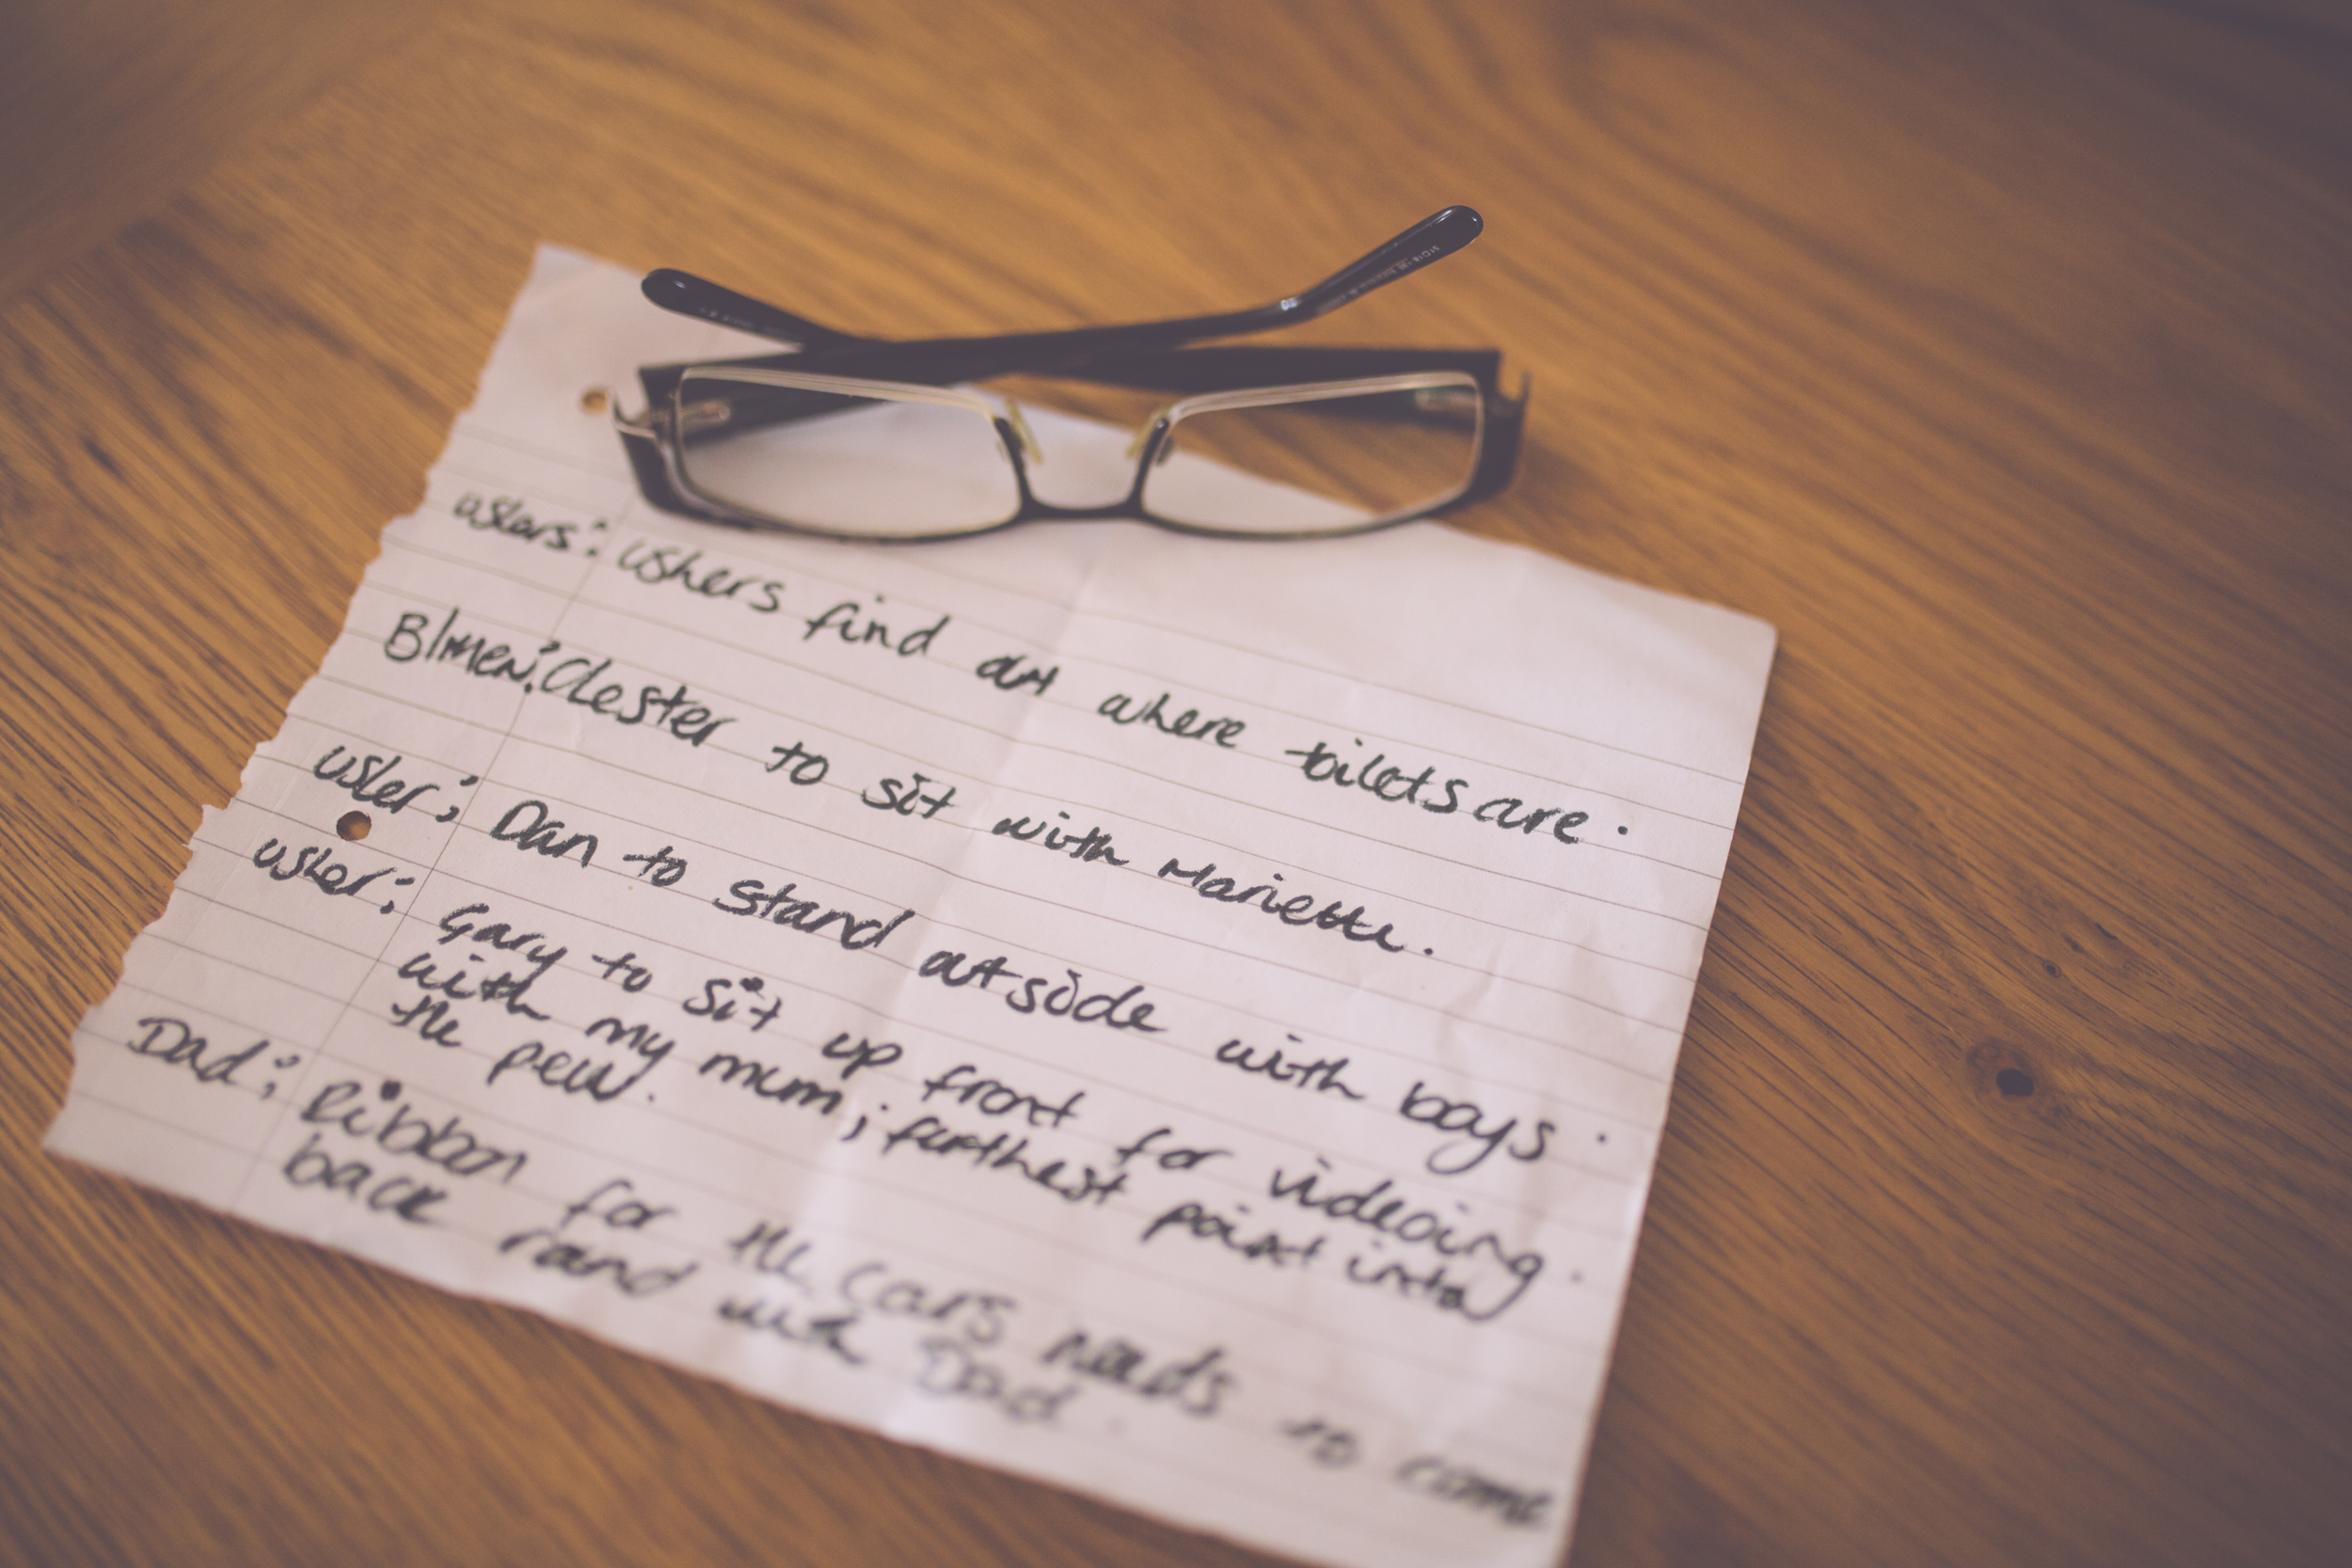 ushers: Ushers find out where toilets are.
B/men: Chester to sit with Mariette.
usher: Dan to stand outside with boys.
usher: Gary to sit up front for videoing.
with my mum; furthest point into
the pew.
Dad: Ribbon for the cars needs to come
back round with Dad.